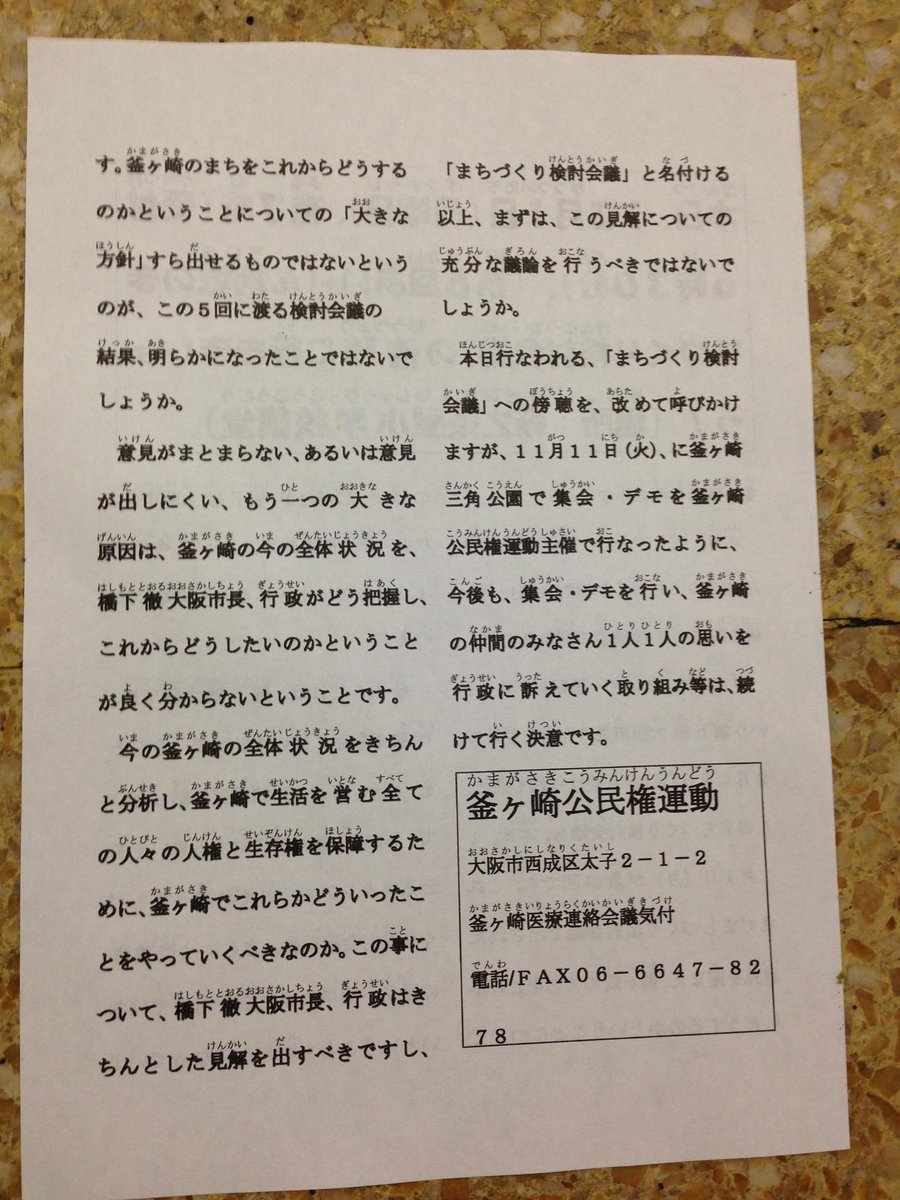 す。釜ヶ崎のまちをこれからどうする
のかということについての「大きな
方針」すら出せるものではないという
のが、この5回に渡る検討会議の
結果、明らかになったことではないで
しょうか。
意見がまとまらない、あるいは意見
が出しにくい、もう一つの大きな
原因は、釜ヶ崎の今の全体状況を、
橋下徹大阪市長、行政がどう把握し、
これからどうしたいのかということ
が良く分からないということです。
今の釜ヶ崎の全体状況をきちん
と分析し、釜ヶ崎で生活を営む全て
の人々の人権と生存権を保障するた
めに、釜ヶ崎でこれらかどういったこ
とをやっていくべきなのか。この事に
ついて、橋下徹大阪市長、行政はき
ちんとした見解を出すべきですし、
「まちづくり検討会議」と名付ける
以上、まずは、この見解についての
充分な議論を行うべきではないで
しょうか。
本日行なわれる、「まちづくり検討
会議」への傍聴を、改めて呼びかけ
ますが、11月11日(火)、に釜ヶ崎
三角公園で集会・デモを釜ヶ崎
公民権運動主催で行なったように、
今後も、集会・デモを行い、釜ヶ崎
の仲間のみなさん1人1人の思いを
行政に訴えていく取り組み等は、続
けて行く決意です。
釜ヶ崎公民権運動
大阪市西成区太子2-1-2
釜ヶ崎医療連絡会議気付
電話/FAX06-6647-82
78